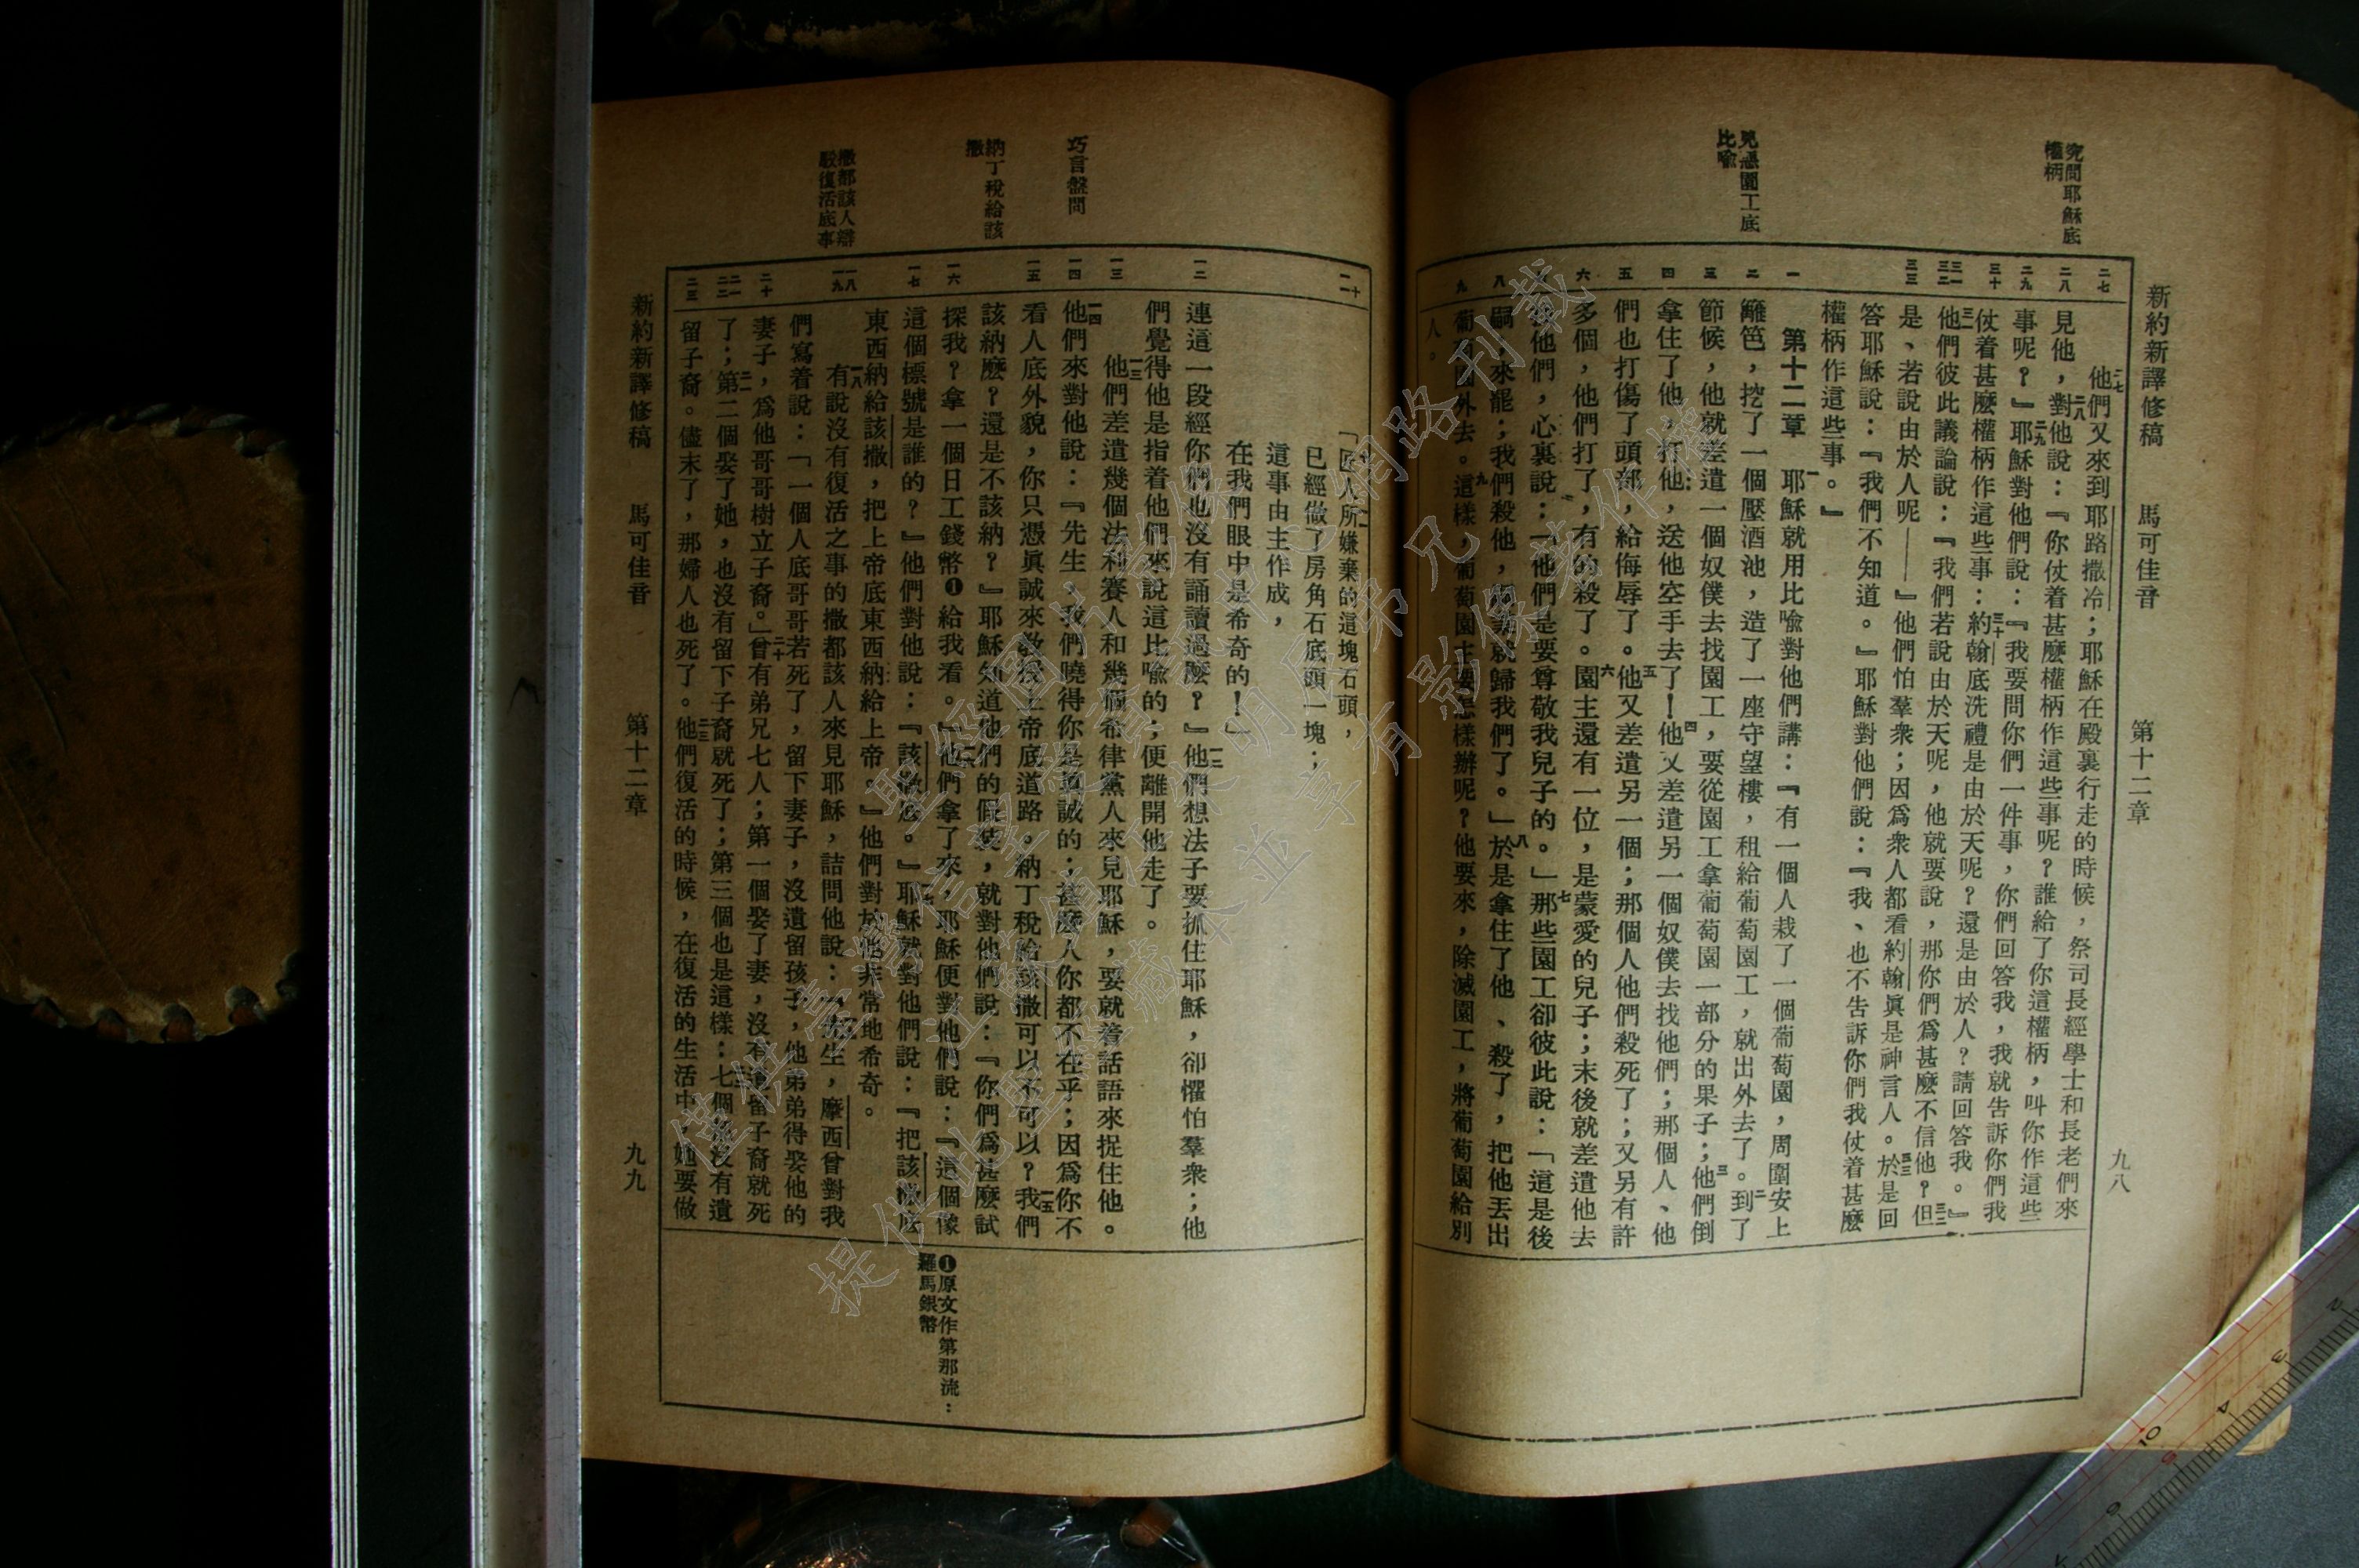 新約新譯修稿 馬可佳音 第十二章 九八
究問耶穌底
權柄
兇惡園工底
比喻
二七
二八
二九
三十
三一
三二
三三
一
二
三
四
五
六
八
九
二七他們又來到耶路撒冷；耶穌在殿裏行走的時候，祭司長經學士和長老們來
見他，二八對他說：『你仗着甚麼權柄作這些事呢？誰給了你這權柄，叫你作這些
事呢？』二九耶穌對他們說：『我要問你們一件事，你們回答我，我就告訴你們我
仗着甚麼權柄作這些事：三十約翰底洗禮是由於天呢？還是由於人？請回答我。』
三一他們彼此議論說：『我們若說由於天呢，他就要說，那你們爲甚麼不信他？三二但
是、若說由於人呢——』他們怕羣衆；因爲衆人都看約翰眞是神言人。三三於是回
答耶穌說：『我們不知道。』耶穌對他們說：『我、也不告訴你們我仗着甚麼
權柄作這些事。』
第十二章 一耶穌就用比喻對他們講：『有一個人栽了一個葡萄園，周圍安上
籬笆，挖了一個壓酒池，造了一座守望樓，租給葡萄園工，就出外去了。二到了
節候，他就差遣一個奴僕去找園工，要從園工拿葡萄園一部分的果子；三他們倒
拿住了他，打他，送他空手去了！四他又差遣另一個奴僕去找他們；那個人、他
們也打傷了頭部，給侮辱了。五他又差遣另一個；那個人他們殺死了；又另有許
多個，他們打了，有的殺了。六園主還有一位，是蒙愛的兒子；末後就差遣他去
他們，心裏說：「他們是要尊敬我兒子的。」七那些園工卻彼此說：「這是後
嗣，來罷；我們殺他，就歸我們了。」八於是拿住了他、殺了，把他丟出
葡萄園外去。九這樣，葡萄園主要怎樣辦呢？他要來，除滅園工，將葡萄園給別
人。
巧言盤問
納丁稅給該
撒
撒都該人辯
駁復活底事
十
一一
一二
一三
一四
一五
一六
一七
一八
一九
二十
二一
二二
二三
「匠人所嫌棄的這塊石頭，
已經做了房角石底頭一塊；
這事由主作成，
在我們眼中是希奇的！」
連這一段經你們也沒有誦讀過麼？』一二他們想法子要抓住耶穌，卻懼怕羣衆；他
們覺得他是指着他們來說這比喻的；便離開他走了。
一三他們差遣幾個法利賽人和幾個希律黨人來見耶穌，要就着話語來捉住他。
一四他們來對他說：『先生，我們曉得你是眞誠的；甚麼人你都不在乎；因爲你不
看人底外貌，你只憑眞誠來教授上帝底道路。納丁稅給該撒可以不可以？一五我們
該納麼？還是不該納？』耶穌知道他們的假裝，就對他們說：『你們爲甚麼試
探我？拿一個日工錢幣❶給我看。』一六他們拿了來，耶穌便對他們說：『這個像
這個標號是誰的？』他們對他說：『該撒底。』一七耶穌就對他們說：『把該撒底
東西納給該撒，把上帝底東西納給上帝。』他們對於他非常地希奇。
一八有說沒有復活之事的撒都該人來見耶穌，詰問他說：一九『先生，摩西曾對我
們寫着說：「一個人底哥哥若死了，留下妻子，沒遺留孩子，他弟弟得娶他的
妻子，爲他哥哥樹立子裔。」二十曾有弟兄七人；第一個娶了妻，沒有遺留子裔就死
了；二一第二個娶了她，也沒有留下子裔就死了；第三個也是這樣：二二七個都沒有遺
留子裔。儘末了，那婦人也死了。二三他們復活的時候，在復活的生活中，她要做
❶原文作第那流：
羅馬銀幣
新約新譯修稿 馬可佳音 第十二章 九九